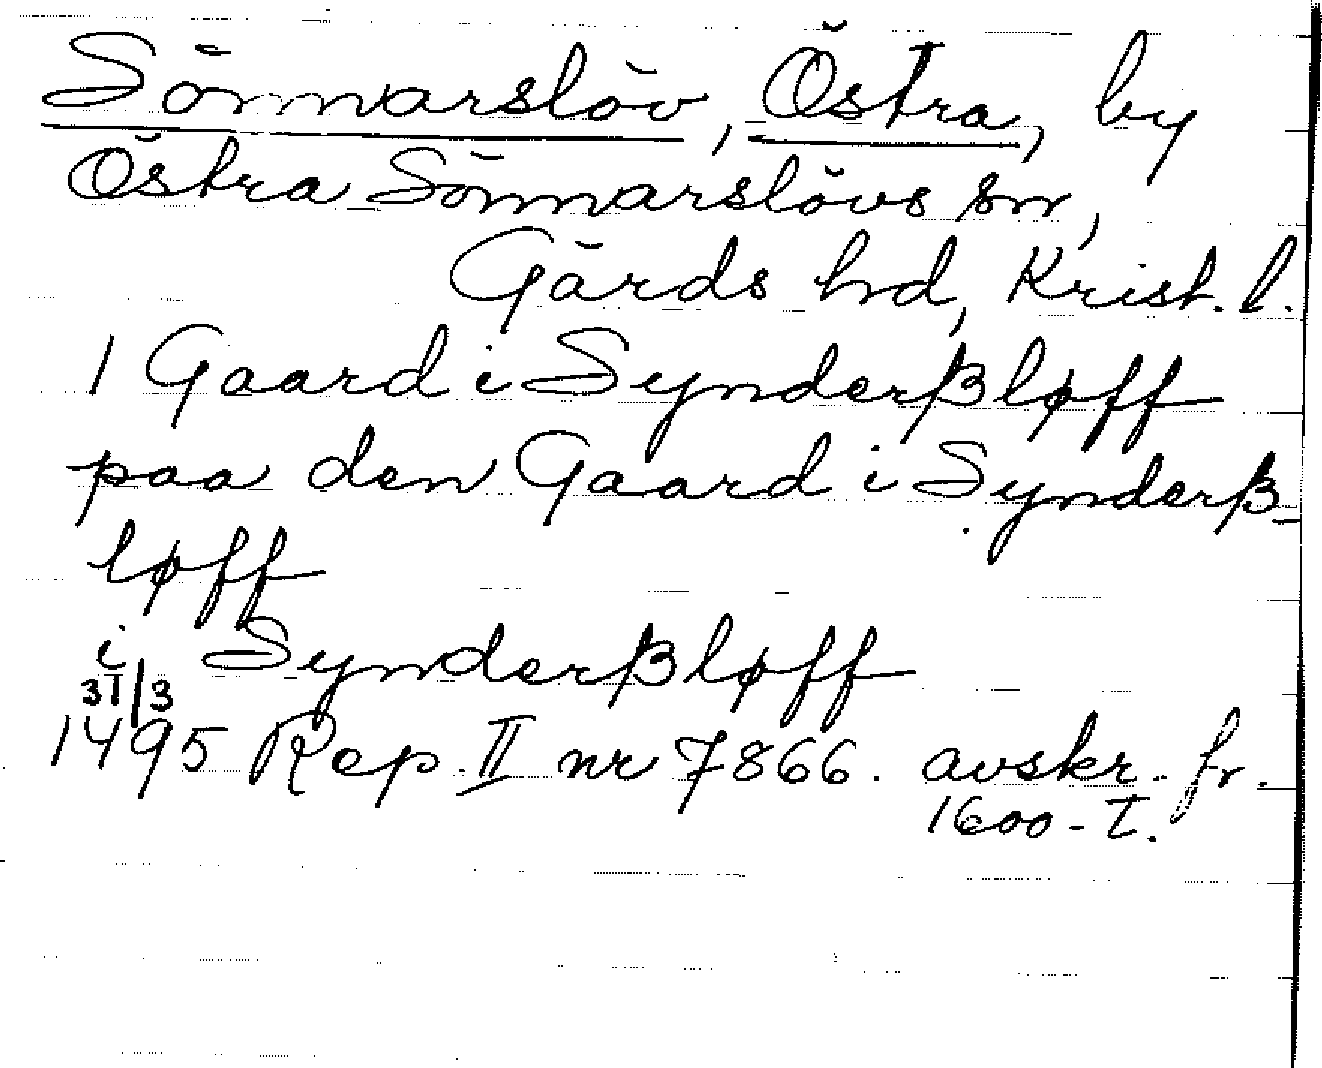 Sönnarslöv, Östra, by
Östra Sönnarslövs sn,
Gärds hd, Krist. l.
1 Gaard i Synderßløff
paa den Gaard i Synderß-
løff
i Synderßløff
31/3
1495 Rep. II nr 7866. avskr. fr.
1600-T.